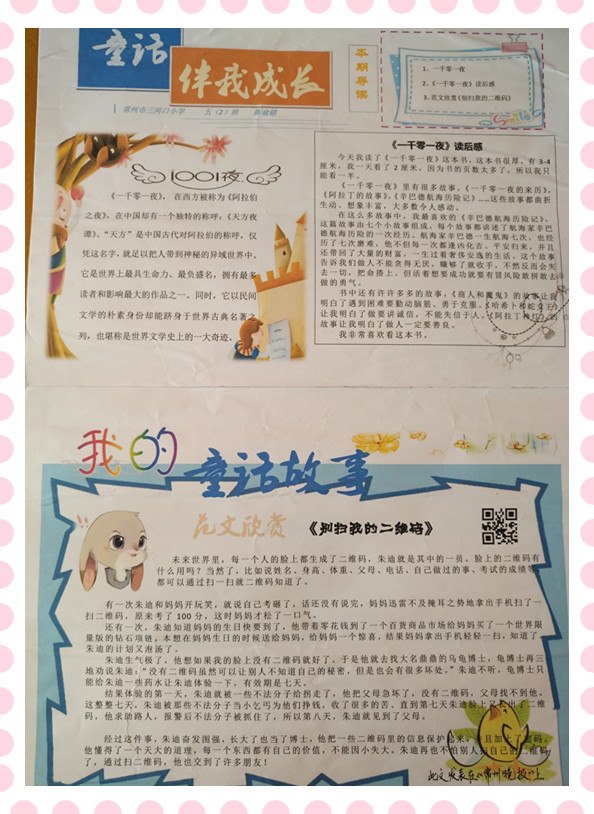 童话
伴我成长
常州市三河口小学 五（2）班
本期导读
1、一千零一夜
2、《一千零一夜》读后感
3、范文欣赏《别扫我的二维码》
Smile
1001夜
《一千零一夜》，在西方被称为《阿拉伯
之夜》，在中国却有一个独特的称呼：《天方夜
谭》。“天方”是中国古代对阿拉伯的称呼，仅
凭这名字，就足以把人带到神秘的异域世界中。
它是世界上最具生命力、最负盛名，拥有最多
读者和影响最大的作品之一。同时，它以民间
文学的朴素身份却能跻身于世界古典名著之
列，也堪称是世界文学史上的一大奇迹。
《一千零一夜》读后感
今天我读了《一千零一夜》这本书，这本书很厚，有3-4
厘米，我一天看了2厘米，因为书的页数太多了，所以我只
能看一半。
《一千零一夜》里有很多故事，《一千零一夜的来历》、
《阿拉丁的故事》、《辛巴德航海历险记》……这些故事都曲折
生动、想象丰富，大多数令人感动。
在这么多故事中，我最喜欢的《辛巴德航海历险记》。
这篇故事由七个小故事组成，每个故事都讲述了航海家辛巴
德航海历险的一次经历。航海家辛巴德一生航海七次，也经
历了七次磨难，他不但每一次都逢凶化吉、平安归来，并且
还带回了大量的财富，一生过着奢侈安逸的生活。这个故事
告诉我们做人不能贪得无厌，赚够了就收手，不然反而会失
去一切，把命搭上。但活着想要成功就要有冒风险敢拼敢去
做的勇气。
书中还有许许多多的故事，《商人和魔鬼》的故事让我
明白了遇到困难要勤动脑筋、勇于克服，《哈希卜和蛇女王》
让我明白了做要讲诚信，不能失信于人，《阿拉丁神灯》的
故事让我明白了做人一定要善良。
我非常喜欢看这本书。
我的
童话故事
范文欣赏 《别扫我的二维码》
未来世界里，每一个人的脸上都生成了二维码，朱迪就是其中的一员。脸上的二维码有
什么用吗？当然了，比如说姓名、身高、体重、父母、电话、自己做过的事、考试的成绩等
都可以通过扫一扫就二维码知道了。
有一次朱迪和妈妈开玩笑，就说自己考砸了，话还没有说完，妈妈迅雷不及掩耳之势地拿出手机扫了一
扫二维码，原来考了100分，这时妈妈才松了一口气。
还有一次，朱迪知道妈妈的生日快要到了，他带着零花钱到了一个百货商品市场给妈妈买了一个世界限
量版的钻石项链，本想在妈妈生日的时候送给妈妈，给妈妈一个惊喜，结果妈妈拿出手机轻轻一扫，知道了
朱迪的计划又泡汤了。
朱迪生气极了，他想如果我的脸上没有二维码就好了，于是他就去找大名鼎鼎的乌龟博士，龟博士再三
地劝说朱迪：“没有二维码虽然可以让别人不知道自己的秘密，但是也会有很多坏处。”朱迪不听，龟博士只
能给朱迪一些药水让朱迪体验一下，有效期是七天。
结果体验的第一天，朱迪就被一些不法分子给拐走了，他把父母急坏了，没有二维码，父母找不到他。
这整整七天，朱迪被那些不法分子当小乞丐为他们挣钱，收了很多的苦。直到第七天朱迪脸上又长出了二维
码，他求助路人，报警后不法分子被抓住了，所以第八天，朱迪就见到了父母。
经过这件事，朱迪奋发图强，长大了也当了博士，他把一些二维码里的信息保护起来，并且加上了密码，
他懂得了一个天大的道理，每一个东西都有自己的价值，不能因小失大。朱迪再也不怕别人扫自己的二维码
了，通过扫二维码，他也交到了许多朋友！
此文发表在《常州晚报》上